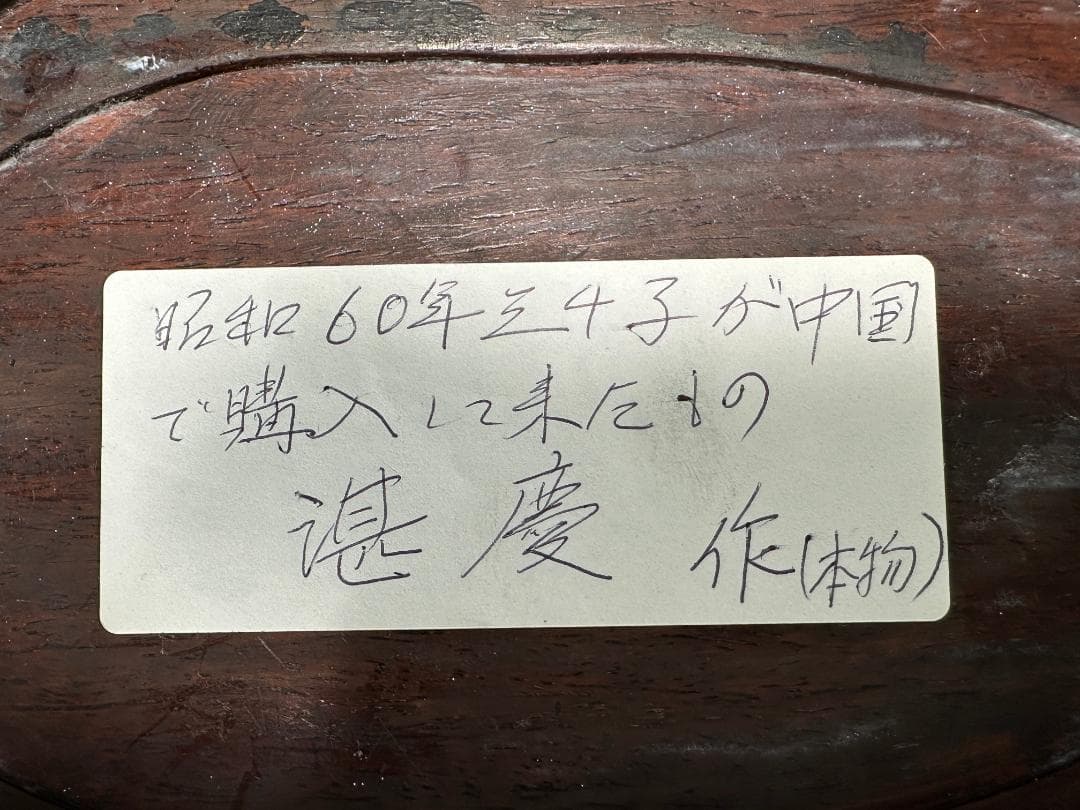 昭和60年三千子が中国
で購入して来たもの
湛慶 作(本物)